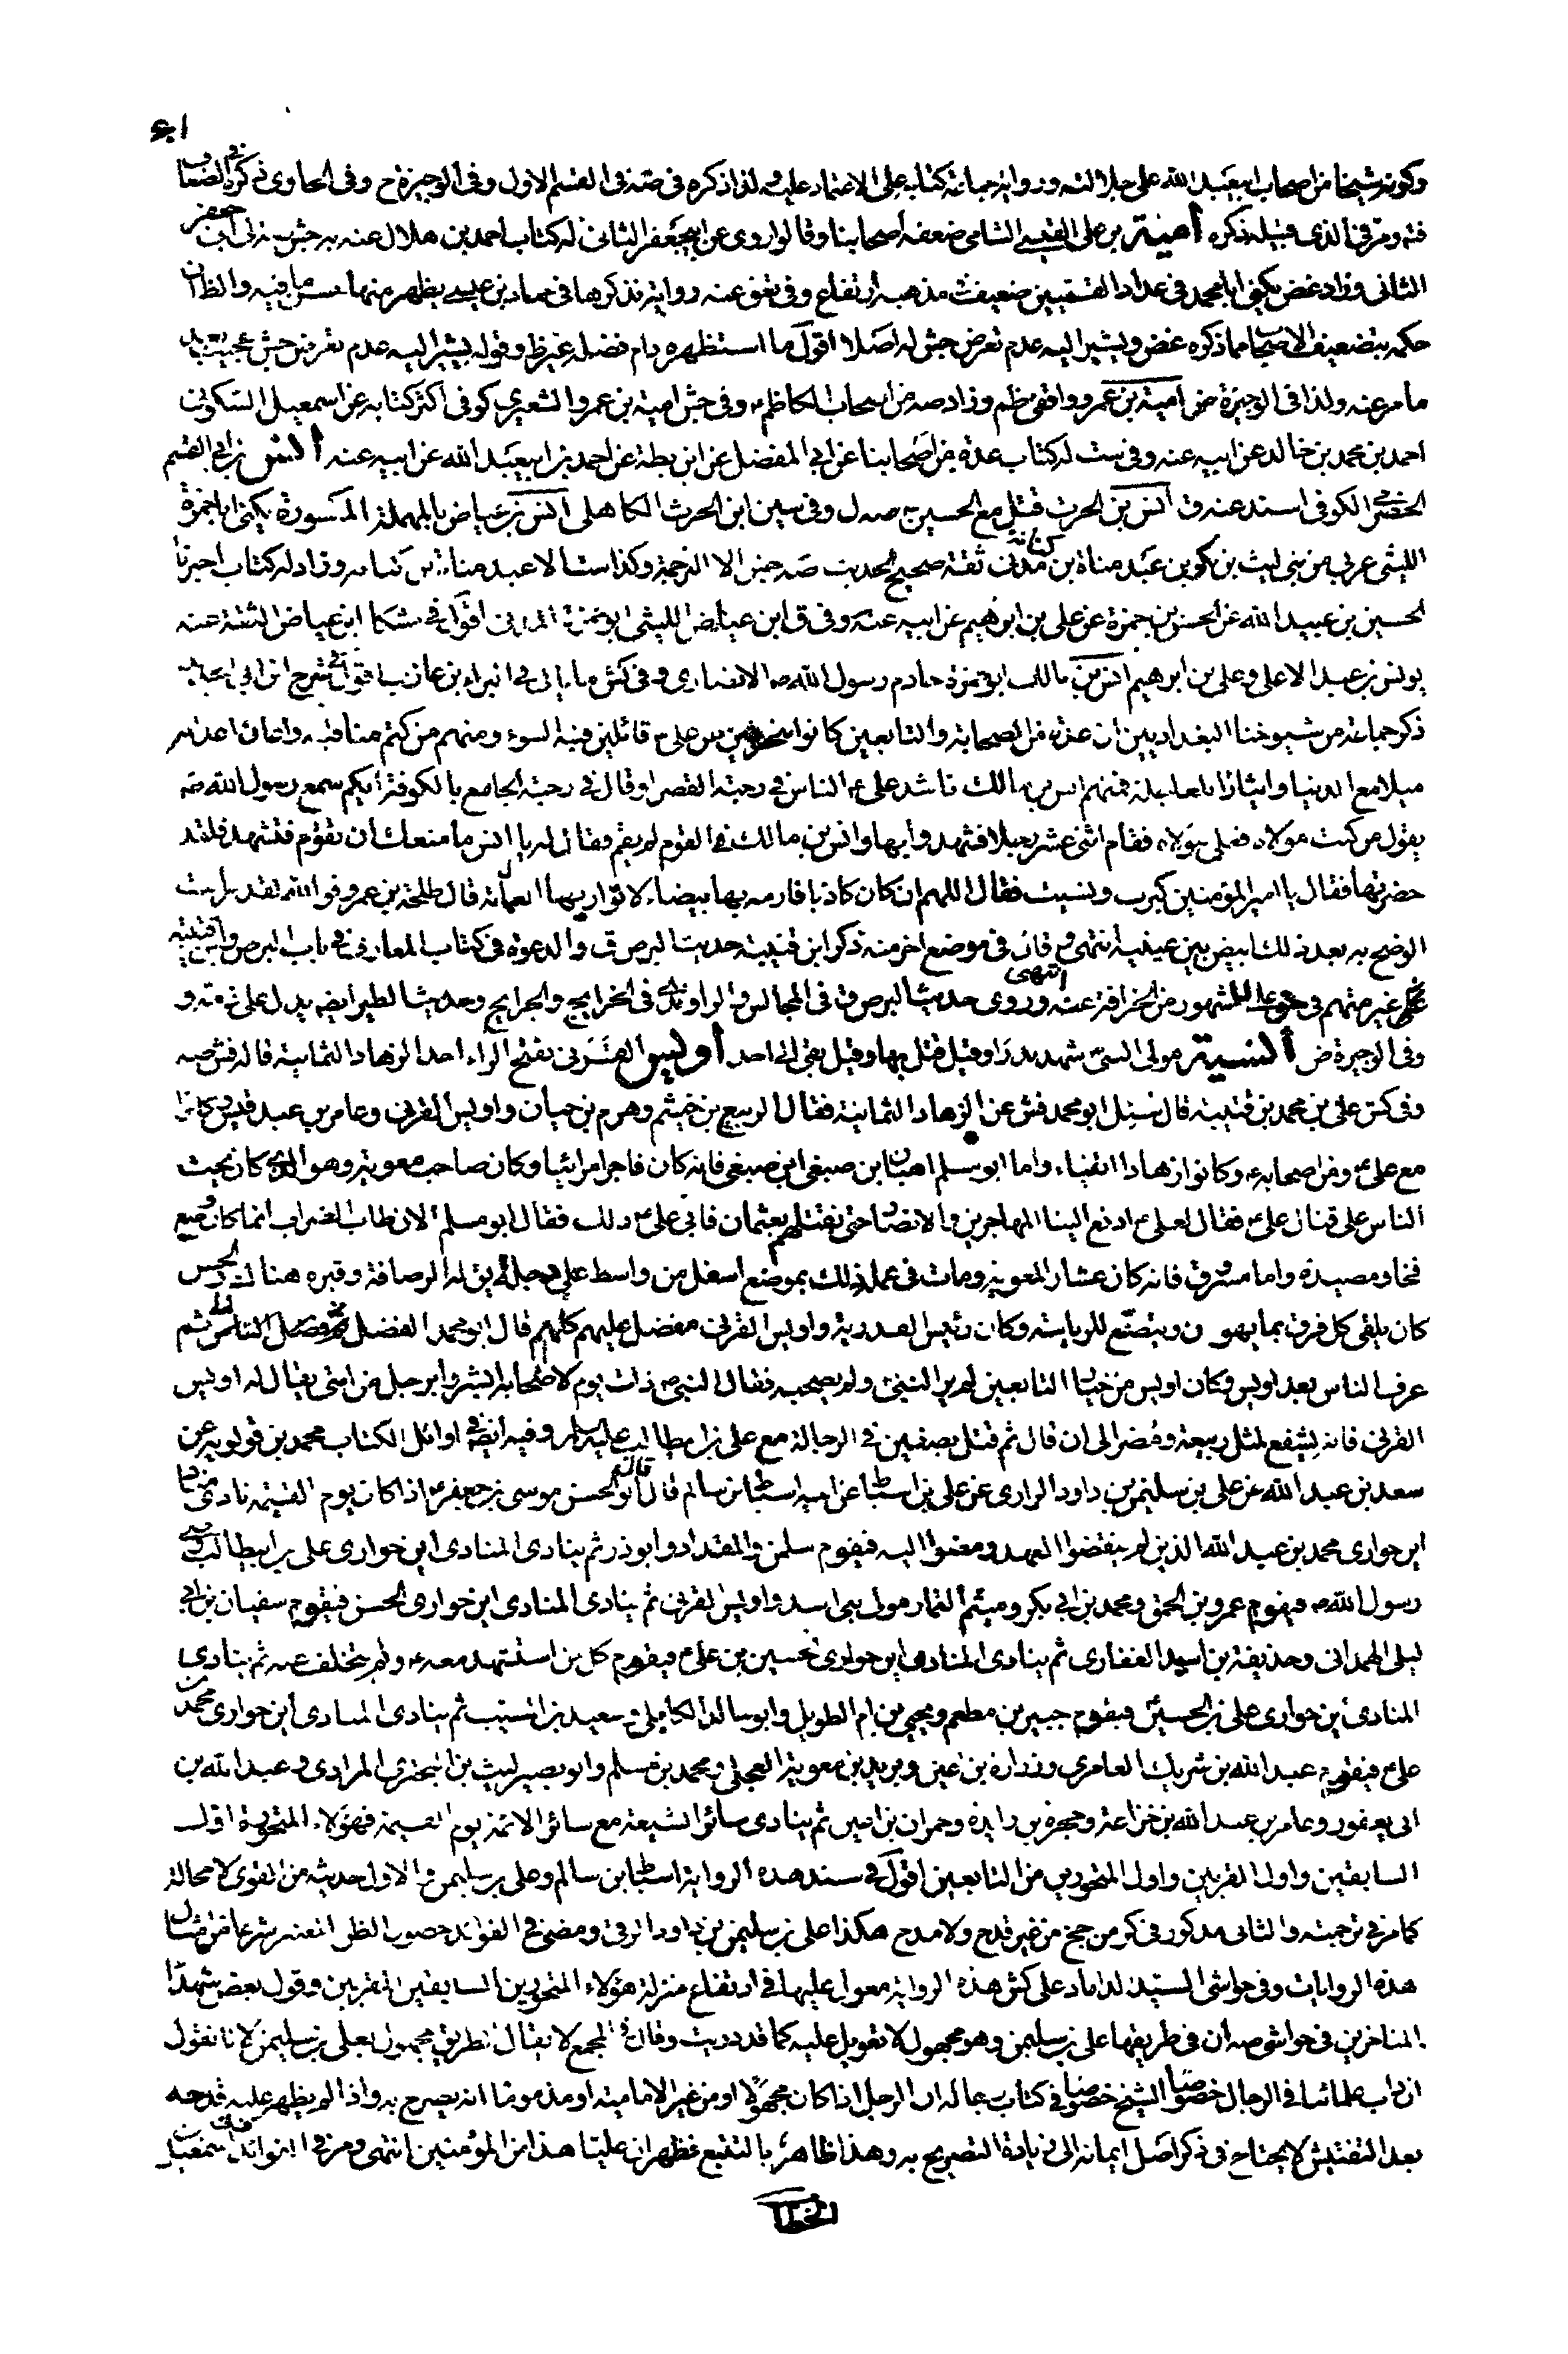 وكونه شيخا من اصحاب ابيعبد الله على جلالته ورواية جماعة كتابه على الاعتماد عليه ولذا ذكره في صه في القسم الاول وفي الوجيزة ح وفي الحاوي ذكره في الضعاف
فته ومر في الذي قبيله ذكره أمية بن على القيسي الشامي ضعفه أصحابنا وقالوا روى عن ابيجعفر الثاني له كتاب أحمد بن هلال عنه به جش صه الى ابي جعفر
الثاني وزاد غض يكنى ابا محمد في عداد القميين ضعيف مذهبه ارتفاع وفي تعق عنه رواية نذكرها في حماد بن عيسى يظهر منها حسن ما فيه والظ ان
حكمه بتضعيف الاصحاب مما ذكره غض ويشير اليه عدم تعرض جش له اصلا اقول ما استظهره دام فضله غير ظ وقوله يشير اليه عدم تعرض جش عجيب بعد
ما مر عنه ولذا في الوجيزة ض امية بن عمرو واقفي ظم وزاد صه من اصحاب الكاظم ع وفي جش امية بن عمرو الشعيري كوفي اكثر كتابه عن اسمعيل السكوني
احمد بن محمد بن خالد عن ابيه عنه وفي ست له كتاب عدة من اصحابنا عن ابي المفضل عن ابن بطة عن احمد بن ابيعبد الله عن ابيه عنه أنس بن ابي القسم
الحضرمي الكوفي اسند عنه ق انس بن الحرث قتل مع الحسين ع صه ل وفي سين ابن الحرث الكاهلي انس بن عياض بالمهملة المكسورة يكنى ابا ضمرة
الليثي عربي من بني ليث بن بكر بن عبد مناة بن كنانة مدني ثقة صحيح الحديث صه جش الا الترجمة وكذا ست الا عبد مناة بن كنانة وزاد له كتاب اخبرنا
الحسين بن عبيد الله عن الحسن بن حمزة عن علي بن ابرهيم عن ابيه عنه وفي ق ابن عياض الليثي ابو ضمرة المدني اقول في مشكا ابن عياض الثقة عنه
يونس بن عبد الاعلى وعلي بن ابرهيم انس بن مالك ابو حمزة خادم رسول الله ص الانصاري وفي كش ما ياتي في البراء بن عازب اقول في شرح ابن ابي الحديد
ذكر جماعة من شيوخنا البغداديين ان عدة من الصحابة والتابعين كانوا منحرفين عن على ع قائلين فيه السوء ومنهم من كتم مناقبه واعان اعدائه
ميلا مع الدنيا وايثارا للعاجلة فمنهم انس بن مالك ناشد على ع الناس في رحبة القصر او قال في رحبة الجامع بالكوفة ايكم سمع رسول الله ص
يقول من كنت مولاه فعلي مولاه فقام اثنى عشر رجلا فشهدوا بها وانس بن مالك في القوم لم يقم فقال له يا انس ما منعك أن تقوم فتشهد فلقد
حضرتها فقال يا امير المؤمنين كبرت ونسيت فقال اللهم ان كان كاذبا فارمه بها بيضاء لا تواريها العمامة قال طلحة بن عمر فوالله لقد رايت
الوضح به بعد ذلك ابيض بين عينيه انتهى وقال في موضع اخر منه ذكر ابن قتيبة حديث البرص والدعوة في كتاب المعارف في باب البرص وابن قتيبة
غير متهم في حق على للمشهور من انحرافه عنه انتهى وروى حديث البرص ق في المجالس والراوندي في الخرايج والجرايح وحديث الطير ايضه يدل على ذمه و
في الوجيزة ض أنسة مولى النبي ص شهد بدرا وقيل قتل بها وقيل بقي الى احد أويس القرني بفتح الراء احد الزهاد الثمانية قاله فش صه
وفي كش على بن محمد بن قتيبة قال سئل ابو محمد فش عن الزهاد الثمانية فقال الربيع بن خيثم وهرم بن حيان واويس القرني وعامر بن عبد قيس وكانوا
مع على ع ومن اصحابه ع وكانوا زهادا اتقياء واما ابو مسلم اهبان ابن صيفي فانه كان فاجرا مرائيا وكان صاحب معوية وهو الذي كان يحث
الناس على قتال على ع فقال لعلي ع ادفع الينا المهاجرين والانصار حتى نقتلهم بعثمان فابى على ع ذلك فقال ابو مسلم الان طاب الضراب انما كان وضع
فخا ومصيدة واما مسروق فانه كان عشارا لمعوية ومات في عمله ذلك بموضع اسفل من واسط على دجلة يق له الرصافة وقبره هناك والحسن
كان يلقى كل فرقة بما يهوون ويتصنع للرياسة وكان رئيس القدرية واويس القرني مفضل عليهم كلهم قال ابو محمد الفضل ثم عرف الناس ثم
عرف الناس بعد اويس وكان اويس من خيار التابعين لم ير النبي ص ولم يصحبه فقال النبي ص ذات يوم لاصحابه ابشروا برجل من امتي يقال له اويس
القرني فانه يشفع لمثل ربيعة ومضر الى ان قال ثم قتل بصفين في الرجالة مع على بن ابيطالب عليه السلام وفيه ايضه في اوائل الكتاب محمد بن قولويه عن
سعد بن عبد الله عن على بن سليمن بن داود الرازي عن على بن اسباط عن ابيه اسباط بن سالم قال قال ابو الحسن موسى بن جعفر ع اذا كان يوم القيمة نادى مناد
اين حواري محمد بن عبد الله الذين لم ينقضوا العهد ومضوا اليه فيقوم سلمن والمقداد وابوذر ثم ينادى المنادى اين حواري على بن ابيطالب وصي
رسول الله ص فيقوم عمرو بن الحمق ومحمد بن ابي بكر وميثم التمار مولى بني اسد واويس القرني ثم ينادى المنادى اين حوارى الحسن فيقوم سفيان بن ابي
ليلى الهمداني وحذيفة بن أسيد الغفاري ثم ينادى المنادى اين حوارى الحسين بن على ع فيقوم كل من استشهد معه ع ولم يتخلف عنه ثم ينادى
المنادى أين حوارى على بن الحسين ع فيقوم جبير بن مطعم ويحيى بن ام الطويل وابو خالد الكابلي وسعيد بن المسيب ثم ينادى المنادى أين حوارى محمد بن
على ع فيقوم عبد الله بن شريك العامري وزرارة بن اعين وبريد بن معوية العجلي ومحمد بن مسلم وابو بصير ليث بن البختري المرادي وعبد الله بن
ابي يعفور وعامر بن عبد الله بن خزاعة وحجر بن زايدة وحمران بن اعين ثم ينادى سائر الشيعة مع سائر الائمة يوم القيمة فهؤلاء المتحورة اول
السابقين واول المقربين واول المتحورين من التابعين اقول في سند هذه الرواية اسباط بن سالم وعلى بن سليمن والاول حديثه من القوى لا محالة
كما مر في ترجمته والثاني مذكور في كر من جخ من غير قدح ولا مدح هكذا على بن سليمن بن داود الرقي ومضى في الفوائد حصول الظن المعتبر شرعا من امثال
هذه الروايات وفي حواشي السيد الداماد على كش هذه الرواية معول عليها في ارتفاع منزلة هؤلاء المتحورين السابقين المقربين وقول بعض شهداء
المتاخرين في حواشي صه أن في طريقها على بن سليمن وهو مجهول لا تعويل عليه كما قد دريت وقال في المجمع لا يقال الطريق مجهول بعلى بن سليمن لانا نقول
ان داب علمائنا في الرجال خصوصا الشيخ خصوصا في كتاب رجاله ان الرجل اذا كان مجهولا او من غير الامامية او مذموما انه يصرح به واذا لم يظهر عليه قدحه
بعد التفتيش لا يحتاج في ذكر اصل ايمانه الى زيادة التصريح به وهذا ظاهر بالتتبع فظهر ان عليا هذا من المؤمنين انتهى ومر في الفوائد